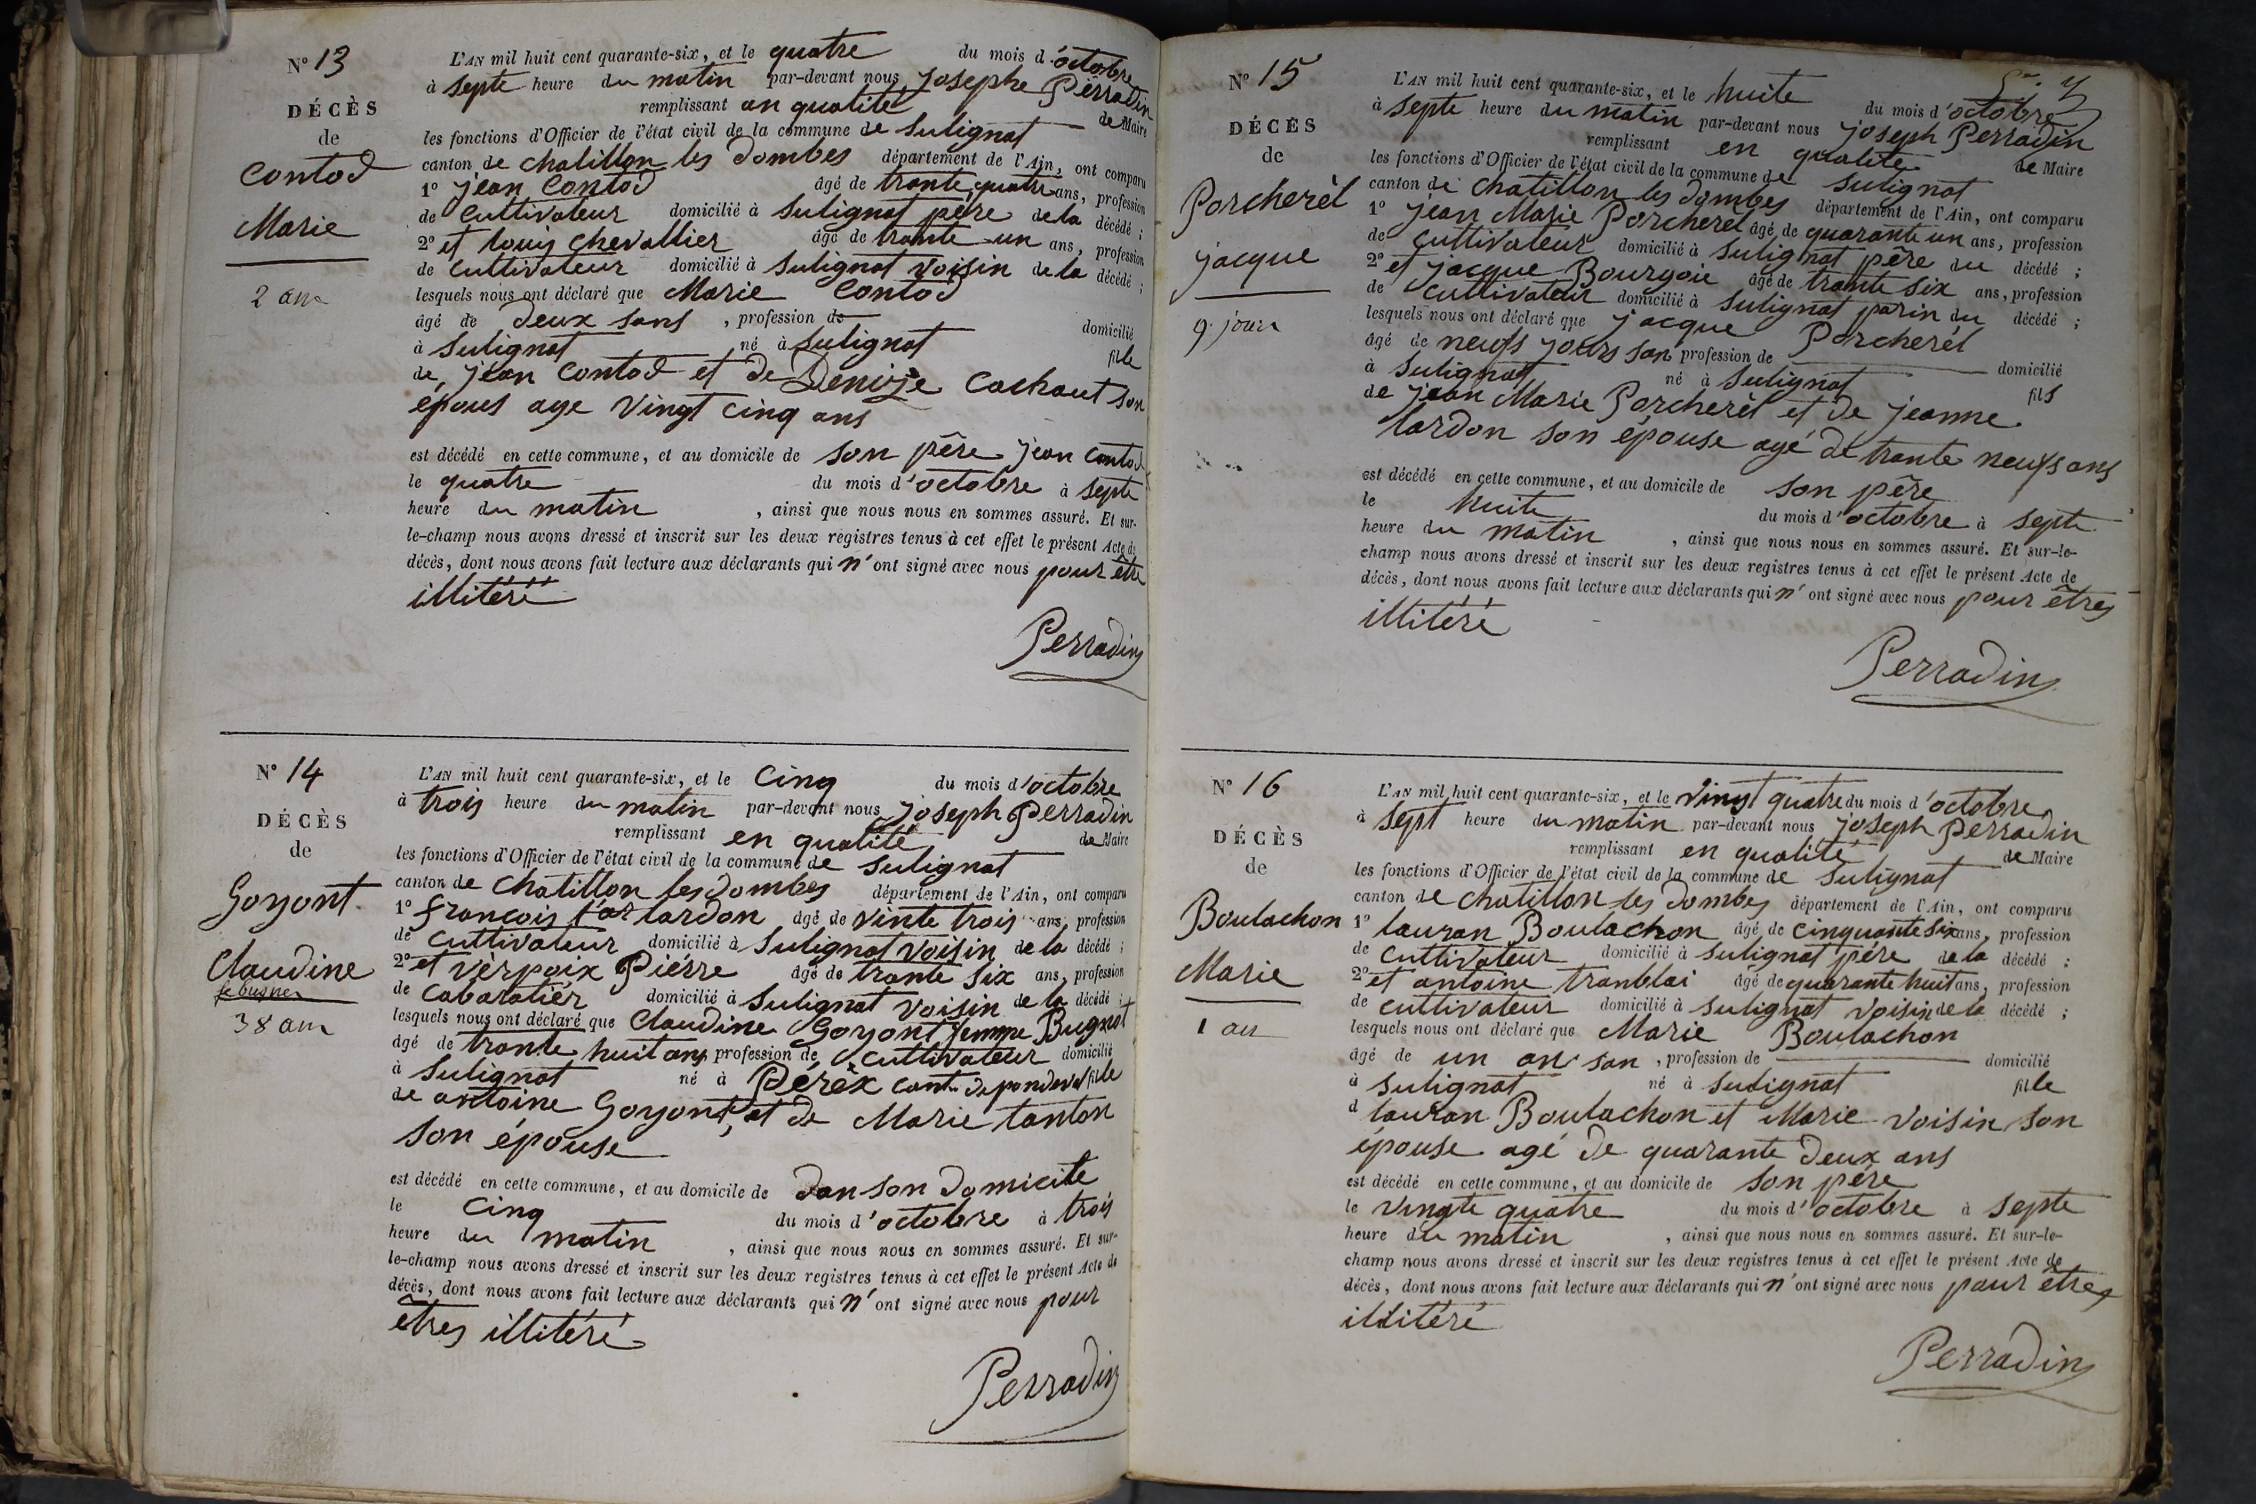 N° 13
DÉCÈS
de
Contod
Marie
2 ans
L'AN mil huit cent quarante-six, et le quatre du mois d'octobre
à septe heure du matin par-devant nous Josephe Perradin
remplissant an qualité de Maire
les fonctions d'Officier de l'état civil de la commune de Sulignat
canton de chatillon les dombes département de l'Ain, ont comparu
1° jean Contod âgé de trante quatre ans, profession
de Cultivateur domicilié à Sulignat père de la décédé ;
2° et louis chevallier âgé de trante un ans, profession
de Cultivateur domicilié à Sulignat voisin de la décédé ;
lesquels nous ont déclaré que Marie Contod
âgé de deux sans , profession de domicilié
à Sulignat né à Sulignat fille
de jean Contod et de Denize Cachaut son
épous age vingt cinq ans
est décédé en cette commune, et au domicile de son père jean Contod
le quatre du mois d'octobre à septe
heure du matin , ainsi que nous nous en sommes assuré. Et sur-
le-champ nous avons dressé et inscrit sur les deux registres tenus à cet effet le présent Acte de
décès, dont nous avons fait lecture aux déclarants qui n'ont signé avec nous pour être
illitéré
Perradin
N° 14
DÉCÈS
de
Goyont
Claudine
38 ans
L'AN mil huit cent quarante-six, et le Cinq du mois d'octobre
à trois heure du matin par-devant nous joseph Perradin
remplissant en qualité de Maire
les fonctions d'Officier de l'état civil de la commune de Sulignat
canton de Chatillon les dombes département de l'Ain, ont comparu
1° françois lardon âgé de vinte trois ans, profession
de Cultivateur domicilié à Sulignat voisin de la décédé ;
2° et vèrpoix Piérre âgé de trante six ans, profession
de Cabaratiér domicilié à Sulignat voisin de la décédé ;
lesquels nous ont déclaré que Claudine Goyont femme Bugnot
âgé de trante huit ans, profession de Cultivateur domicilié
à Sulignat né à Péréx cant. de pondeval fille
de antoine Goyont, et de Marie tanton
son épouse
est décédé en cette commune, et au domicile de dan son domicile
le cinq du mois d'octobre à trois
heure du matin , ainsi que nous nous en sommes assuré. Et sur-
le-champ nous avons dressé et inscrit sur les deux registres tenus à cet effet le présent Acte de
décès, dont nous avons fait lecture aux déclarants qui n'ont signé avec nous pour
êtres illitéré
Perradin
N° 15
DÉCÈS
de
Porcherèl
jacque
9 jours
L'AN mil huit cent quarante-six, et le huite du mois d'octobre
à septe heure du matin par-devant nous joseph Perradin
remplissant en qualité de Maire
les fonctions d'Officier de l'état civil de la commune de Sulignat
canton de Chatillon les dombes département de l'Ain, ont comparu
1° jean Marie Porcherél âgé de quarante un ans, profession
de Cultivateur domicilié à Sulignat père du décédé ;
2° et jacque Bourgoie âgé de trante six ans, profession
de Cultivateur domicilié à Sulignat parin du décédé ;
lesquels nous ont déclaré que jacque Porcherél
âgé de neufs jours san profession de domicilié
à Sulignat né à Sulignat fils
de jean Marie Porcherèl et de jeanne
lardon son épouse agé de trante neufs ans
est décédé en cette commune, et au domicile de son père
le huite du mois d'octobre à septe
heure du matin , ainsi que nous nous en sommes assuré. Et sur-le-
champ nous avons dressé et inscrit sur les deux registres tenus à cet effet le présent Acte de
décès, dont nous avons fait lecture aux déclarants qui n'ont signé avec nous pour êtres
illitéré
Perradin
N° 16
DÉCÈS
de
Boulachon
Marie
1 an
L'AN mil huit cent quarante-six, et le vingt quatre du mois d'octobre
à sept heure du matin par-devant nous joseph Perradin
remplissant en qualité de Maire
les fonctions d'Officier de l'état civil de la commune de Sulignat
canton de chatillon les dombes département de l'Ain, ont comparu
1° lauran Boulachon âgé de cinquante six ans, profession
de Cultivateur domicilié à Sulignat père de la décédé ;
2° et antoine tranblai âgé de quarante huit ans, profession
de cultivateur domicilié à Sulignat voisin de la décédé ;
lesquels nous ont déclaré que Marie Boulachon
âgé de un an san , profession de domicilié
à Sulignat né à Sulignat fille
d lauran Boulachon et Marie voisin son
épouse agé de quarante deux ans
est décédé en cette commune, et au domicile de son pére
le vingte quatre du mois d'octobre à septe
heure du matin , ainsi que nous nous en sommes assuré. Et sur-le-
champ nous avons dressé et inscrit sur les deux registres tenus à cet effet le présent Acte de
décès, dont nous avons fait lecture aux déclarants qui n'ont signé avec nous pour êtres
illitéré
Perradin